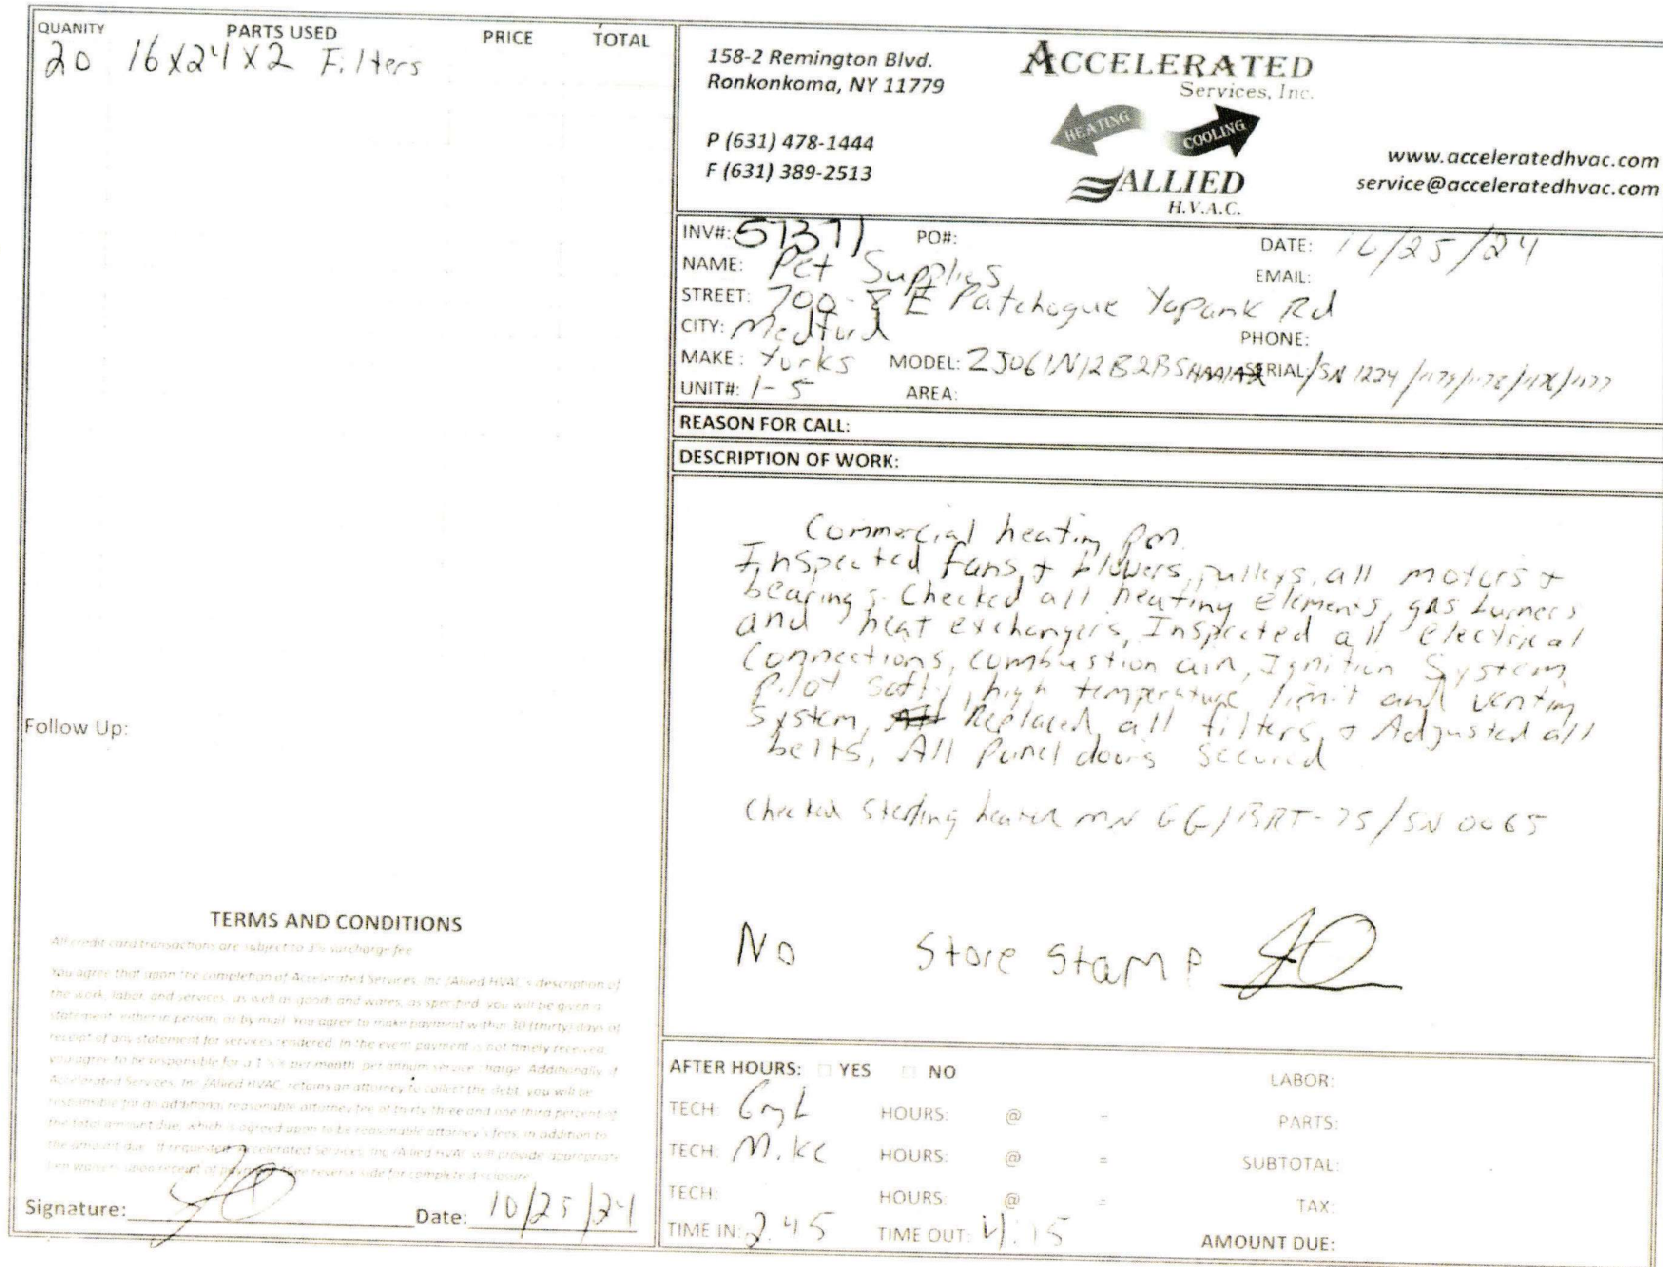 QUANITY PARTS USED PRICE TOTAL
20 16x24x2 Filters
Follow Up:
TERMS AND CONDITIONS
All credit card transactions are subject to 3% surcharge fee
You agree that upon the completion of Accelerated Services, Inc /Allied HVAC's description of
the work, labor, and services, as well as goods and wares, as specified, you will be given a
statement either in person, or by mail. You agree to make payment within 30 (thirty) days of
receipt of any statement for services rendered. In the event payment is not timely received,
you agree to be responsible for a 1 % per month, per annum service charge. Additionally, if
Accelerated Services, Inc /Allied HVAC, retains an attorney to collect the debt, you will be
responsible for an additional reasonable attorney fee of thirty three and one third percent of
the total amount due, which is agreed upon to be reasonable attorney's fees, in addition to
the amount due. If requested, Accelerated Services, Inc /Allied HVAC will provide appropriate
lien waivers upon receipt of payment. See reverse side for complete disclosure
Signature: Date: 10/25/24
158-2 Remington Blvd.
Ronkonkoma, NY 11779
P (631) 478-1444
F (631) 389-2513
ACCELERATED
Services, Inc.
HEATING COOLING
ALLIED
H.V.A.C.
www.acceleratedhvac.com
service@acceleratedhvac.com
INV#: 57371 PO#: DATE: 10/25/24
NAME: Pet Supplies EMAIL:
STREET: 700-8 E Patchogue Yapank Rd
CITY: Medford PHONE:
MAKE: Yorks MODEL: ZJ061N12B2B5 SERIAL: /SN 1224
UNIT#: 1-5 AREA:
REASON FOR CALL:
DESCRIPTION OF WORK:
Commercial heating pm.
Inspected fans + blowers, pulleys, all motors +
bearings. Checked all heating elements, gas burners
and heat exchangers, Inspected all electrical
connections, combustion air, Ignition System
pilot safty, high temperature limit and venting
system, Replaced all filters, + Adjusted all
belts, All Panel doors secured
Checked Sterling heater MN GG/BRT-75/SN 0065
No Store Stamp
AFTER HOURS: YES NO LABOR:
TECH: HOURS: @ = PARTS:
TECH: Mike HOURS: @ = SUBTOTAL:
TECH: HOURS: @ = TAX:
TIME IN: 2:45 TIME OUT: 4:15 AMOUNT DUE: